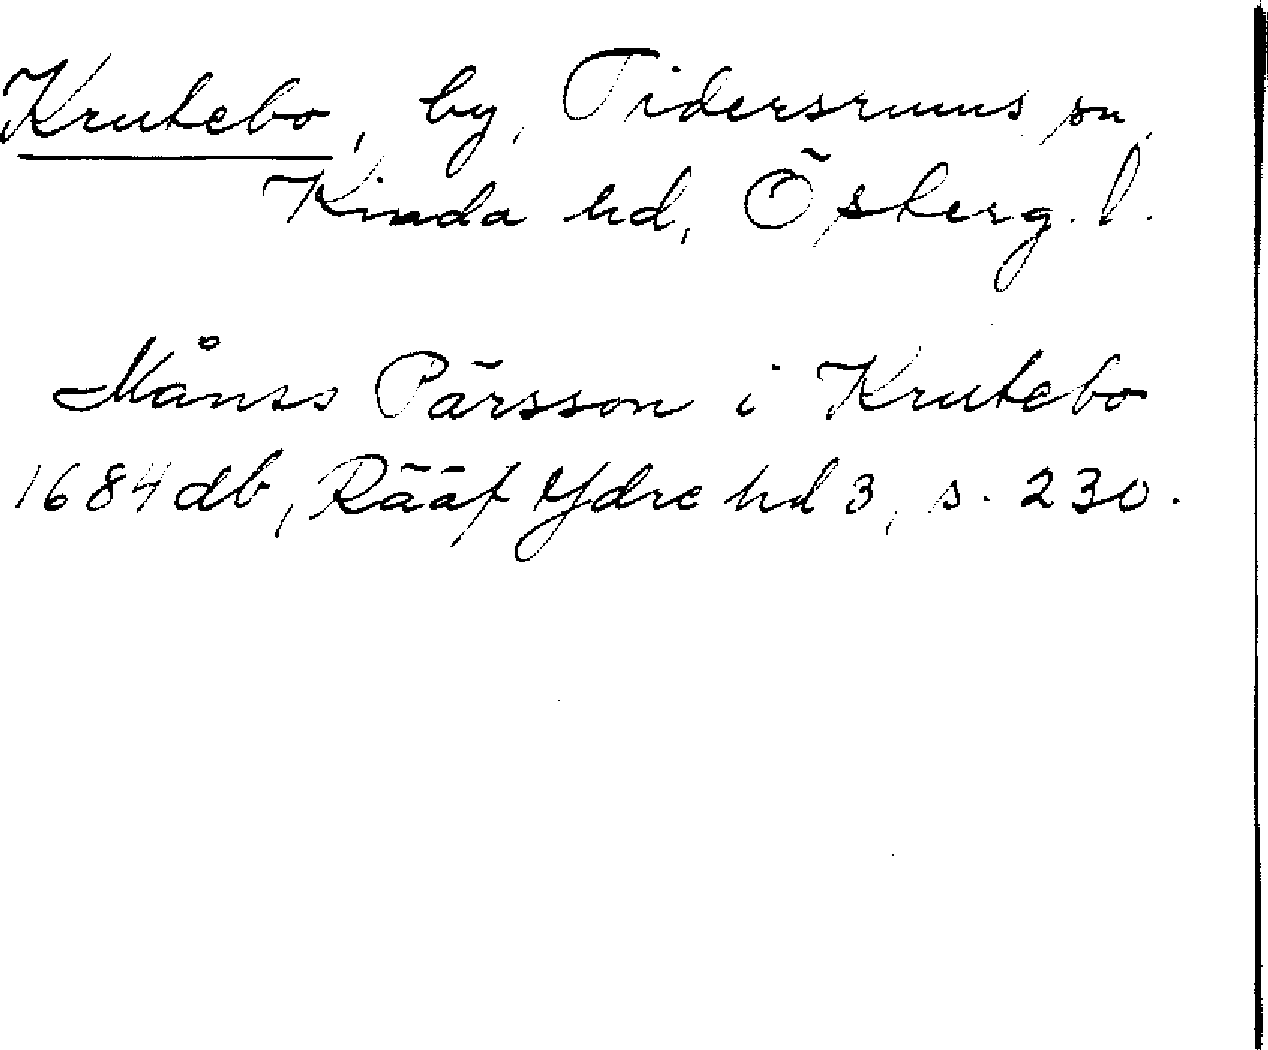 Krutebo, by, Tidersrums sn,
Kinda hd, Östergl.
Månss Pärsson i Krutebo
1684 db, Rääf Ydre hd 3, s. 230.